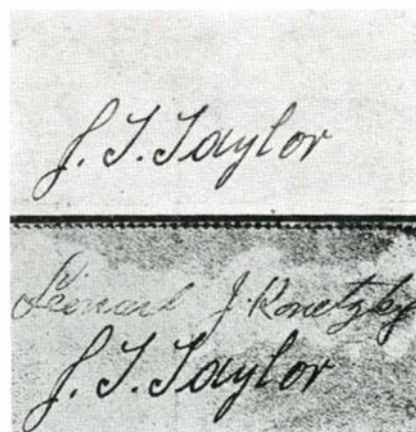 J. T. Taylor
Leonard J. Konetzky
J. T. Taylor